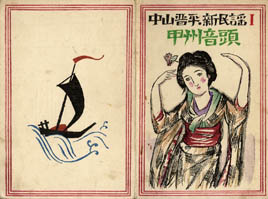 中山晋平新民謡 I
甲州音頭